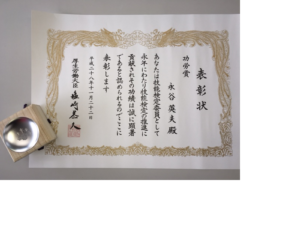 表彰状
功労賞
永谷英夫殿
あなたは技能検定委員として
永年にわたり技能検定の推進に
貢献されその功績は誠に顕著
であると認められるのでここに
表彰します
平成二十八年十一月二十二日
厚生労働大臣